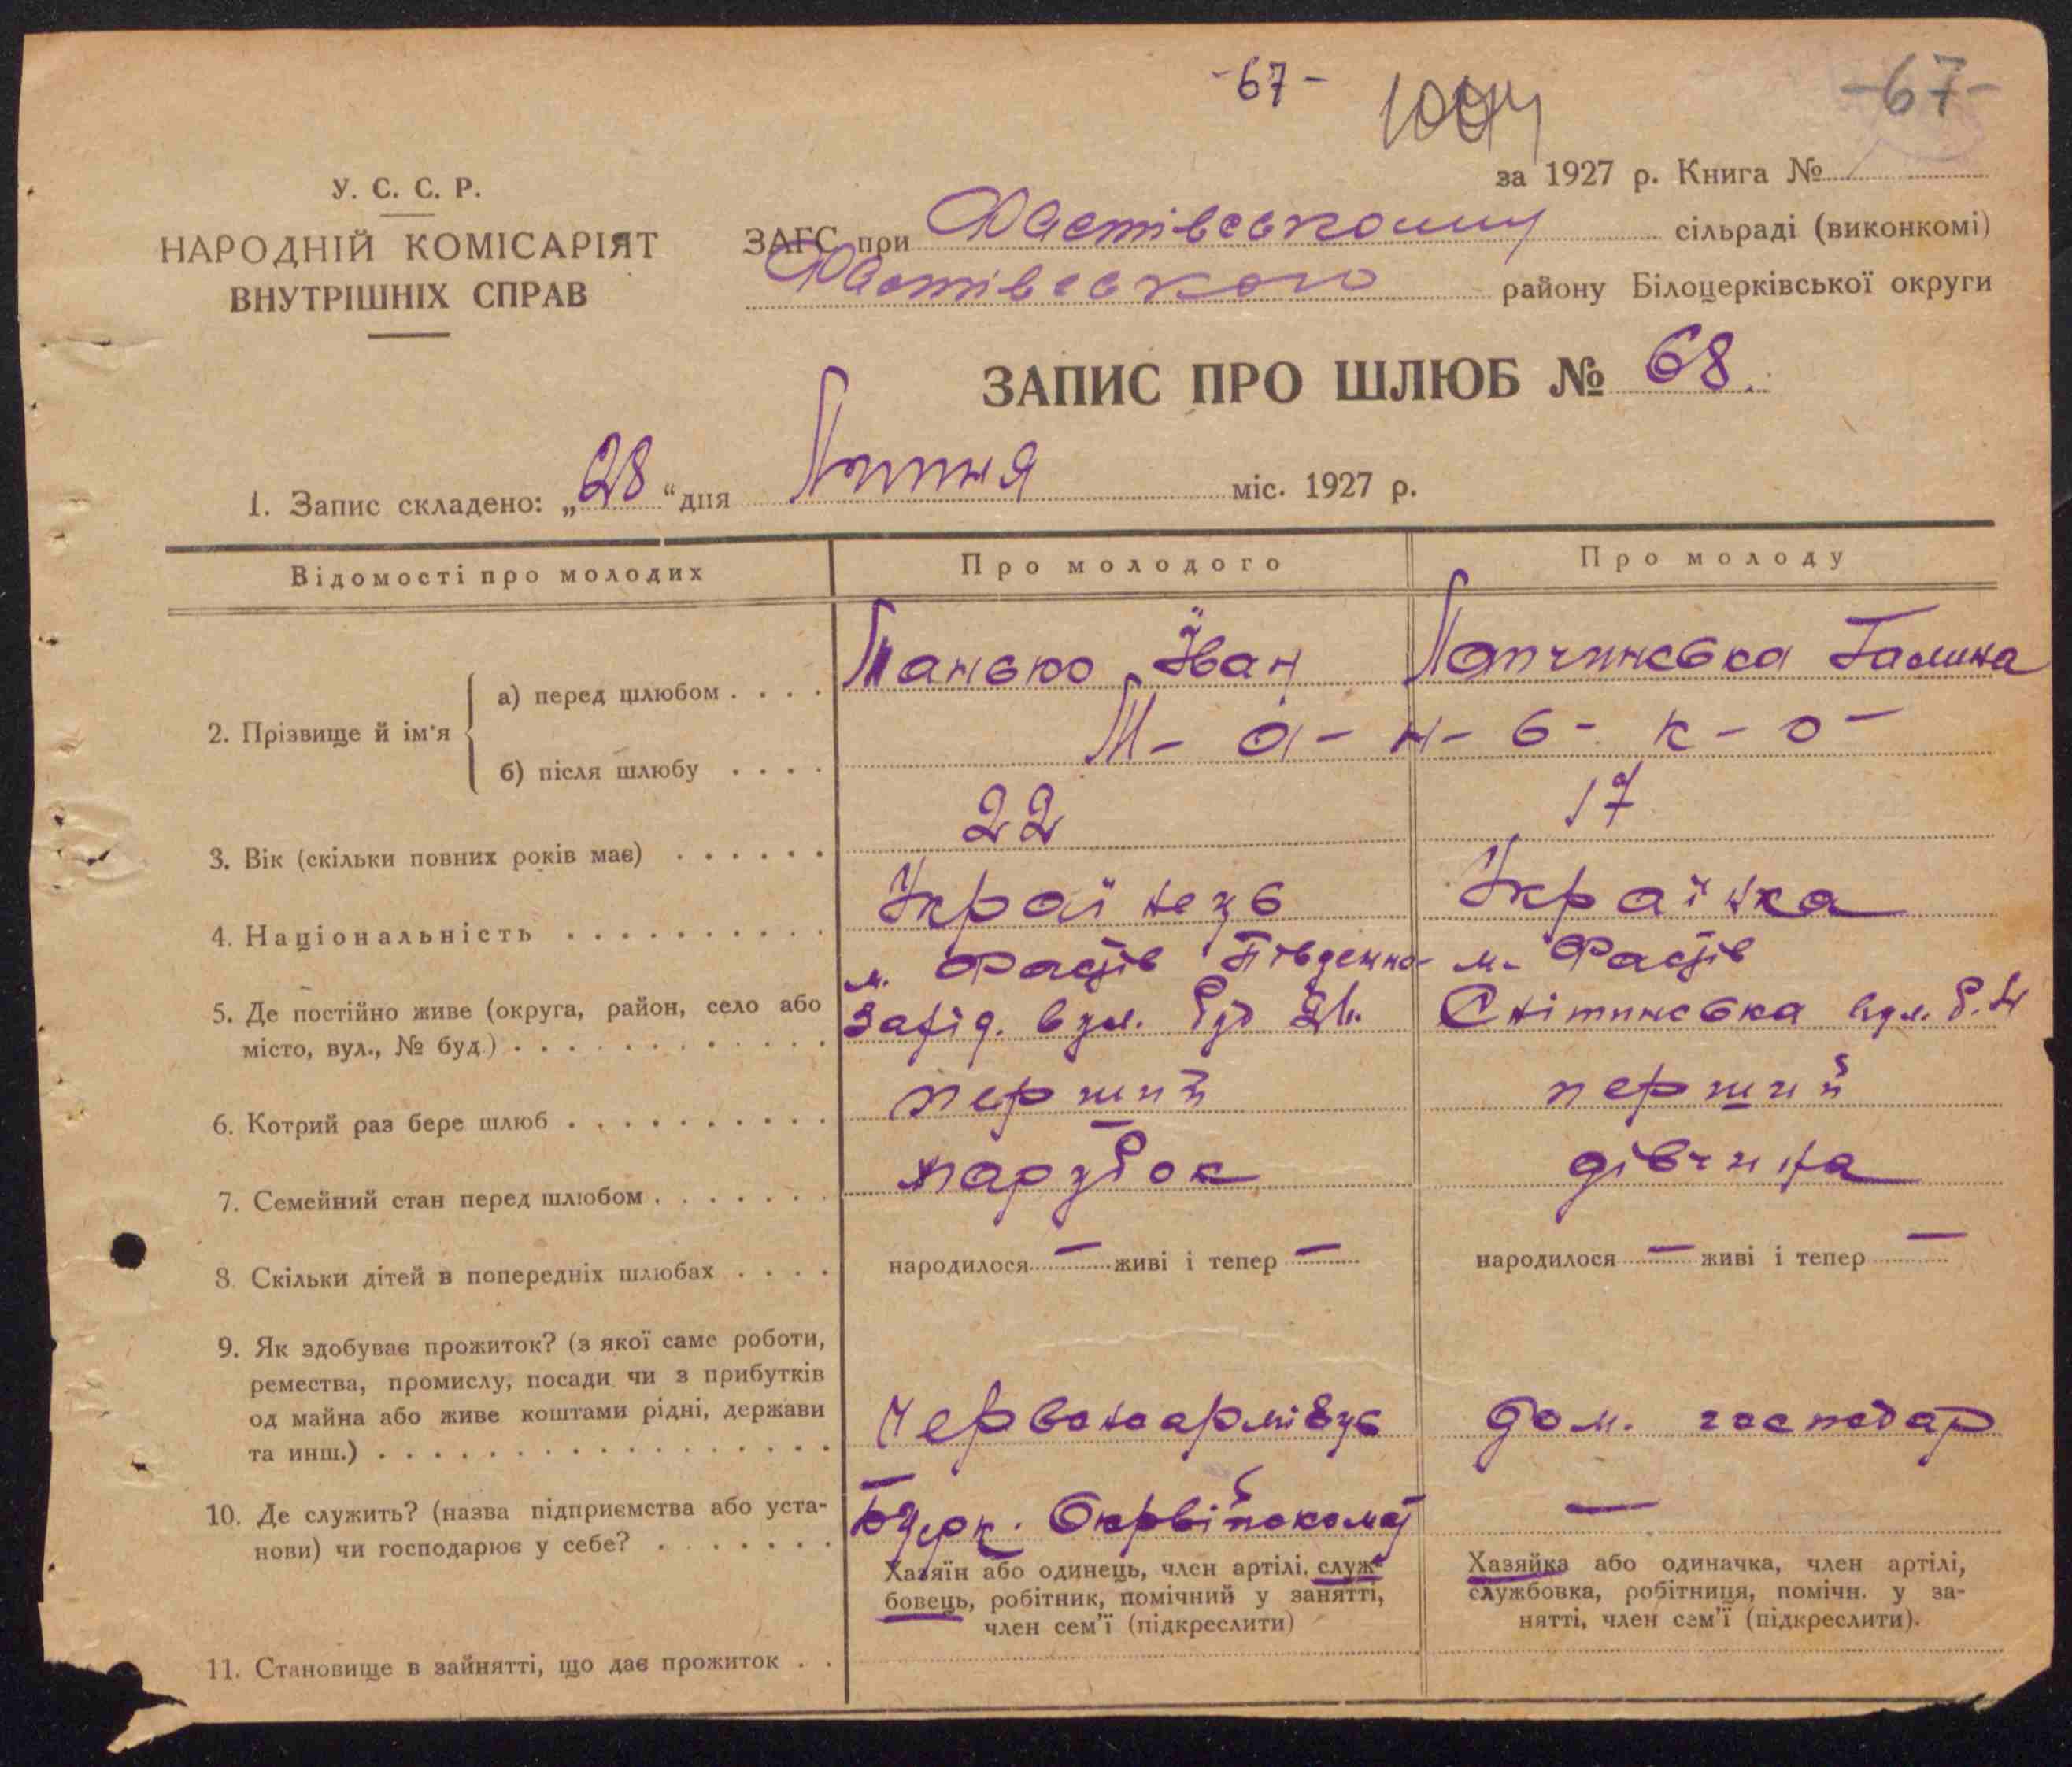 -67-
-67-
за 1927 р. Книга №
У. С. С. Р.
НАРОДНІЙ КОМІСАРІЯТ
ВНУТРІШНІХ СПРАВ
ЗАГС при Фастівському сільраді (виконкомі)
Фастівського району Білоцерківської округи
ЗАПИС ПРО ШЛЮБ № 68
1. Запис складено: „28“ дня Липня міс. 1927 р.
Відомості про молодих
Про молодого
Про молоду
2. Прізвище й ім'я
а) перед шлюбом . . . .
Манько Іван
Лопчинська Галина
б) після шлюбу . . . .
М - а - н - ь - к - о -
3. Вік (скільки повних років має) . . . . . .
22
17
4. Національність . . . . . . . . . .
Українець
Українка
5. Де постійно живе (округа, район, село або
місто, вул., № буд.) . . . . . . . . . . . .
м. Фастів Південно-
Захід. вул.
м. Фастів
Снітинська вул.
6. Котрий раз бере шлюб . . . . . . . . . .
перший
перший
7. Семейний стан перед шлюбом . . . . . . .
парубок
дівчина
8. Скільки дітей в попередніх шлюбах . . . .
народилося — живі і тепер —
народилося — живі і тепер —
9. Як здобуває прожиток? (з якої саме роботи,
ремества, промислу, посади чи з прибутків
од майна або живе коштами рідні, держави
та инш.) . . . . . . . . . . . . . . . . .
Червоноармієць
дом. господар
10. Де служить? (назва підприємства або уста-
нови) чи господарює у себе? . . . . . . .
Бцерк.
—
Хазяїн або одинець, член артілі, служ-
бовець, робітник, помічний у занятті,
член сем'ї (підкреслити)
Хазяйка або одиначка, член артілі,
службовка, робітниця, помічн. у за-
нятті, член сем'ї (підкреслити).
11. Становище в зайнятті, що дає прожиток . .